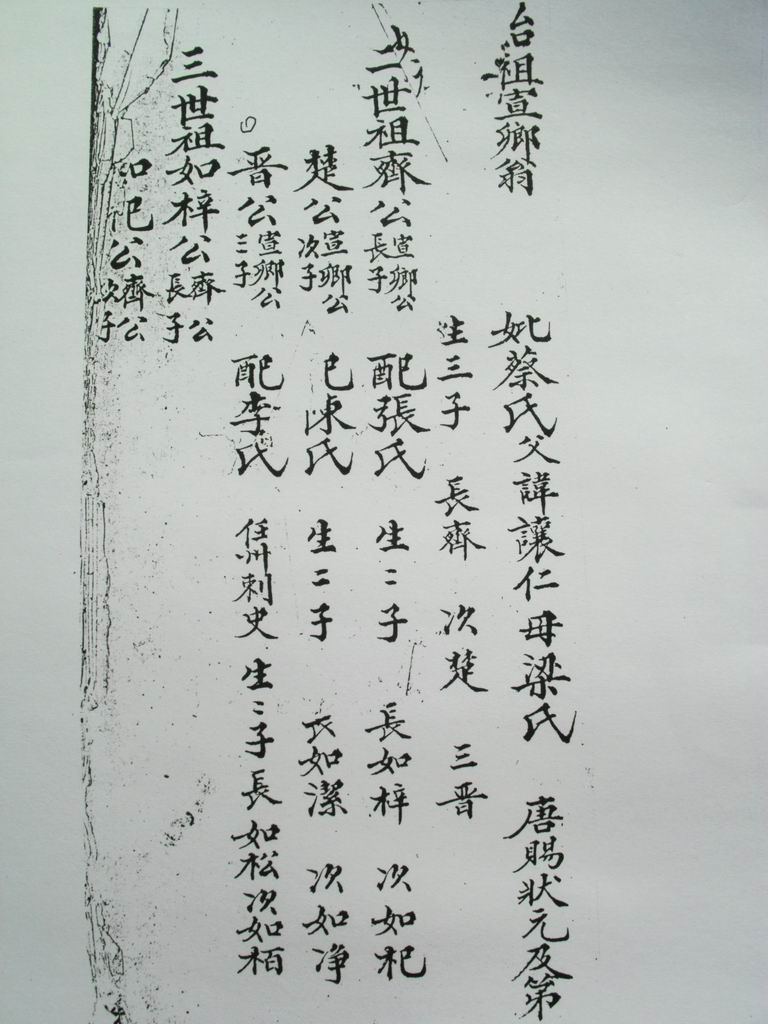 台祖宣卿翁
妣蔡氏父諱讓仁母梁氏 唐賜狀元及第
生三子 長齊 次楚 三晋
二世祖齊公宣卿公長子 配張氏 生二子 長如梓 次如杞
楚公宣卿公次子 配陳氏 生二子 長如潔 次如净
晋公宣卿公三子 配李氏 任州刺史 生二子長如松次如栢
三世祖如梓公齊公長子
如杞公齊公次子